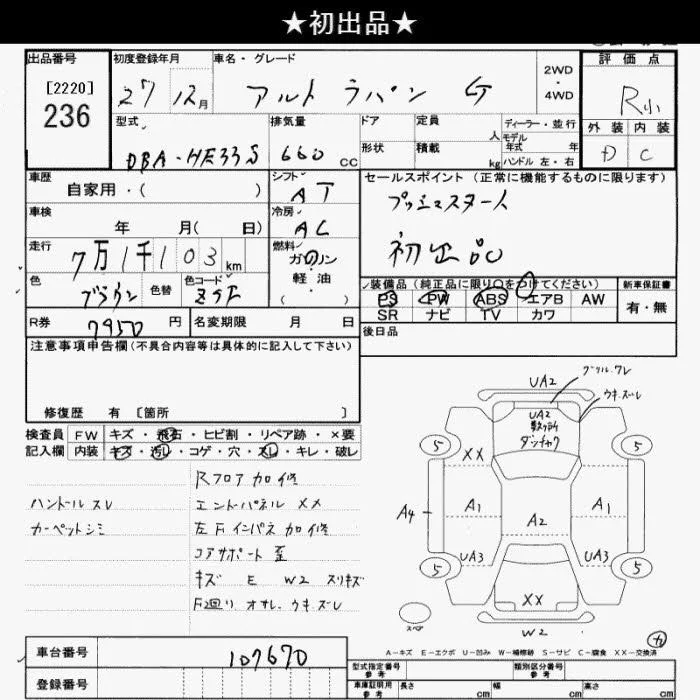 ★初出品★
出品番号
[2220]
236
初度登録年月
27 12月
車名・グレード
アルト ラパン G
2WD
・
4WD
評価点
R小
型式
DBA-HE33S
排気量
660 cc
ドア
形状
定員
人
積載
kg
ディーラー・並行
モデル
年式 年
ハンドル 左・右
外装 内装
D C
車歴
自家用・( )
シフト
AT
セールスポイント (正常に機能するものに限ります)
プッシュスタート
初出品
車検
年 月( 日)
冷房
AC
走行
7万1千103km
燃料
ガソリン
・
軽油
( )
色
ブラウン
色替
色コード
ZSF
装備品(純正品に限り○をつけてください)
PS PW ABS エアB AW
SR ナビ TV カワ
新車保証書
有・無
R券
7950円
名変期限 月 日
後日品
注意事項申告欄(不具合内容等は具体的に記入して下さい)
修復歴 有 [箇所 ]
検査員
記入欄
FW キズ・飛石・ヒビ割・リペア跡・×要
内装 キズ・汚レ・コゲ・穴・スレ・キレ・破レ
Rフロア加修
ハンドルスレ
エンドパネル XX
カーペットシミ
左Fインパネ加修
コアサポート歪
キズ E W2 スリキズ
F廻り オサレ、ウキ、ズレ
グリル、ワレ
ウキ、ズレ
UA2
UA2
数ヶ所
5 5
XX
A4
A1
A2
A1
UA3
UA3
5 5
XX
W2
スペア
A-キズ E-エクボ U-凹み W-補修跡 S-サビ C-腐食 XX-交換済
車台番号
107670
登録番号
型式指定番号
参考
類別区分番号
参考
車庫証明用
参考
長さ cm
幅 cm
高さ cm